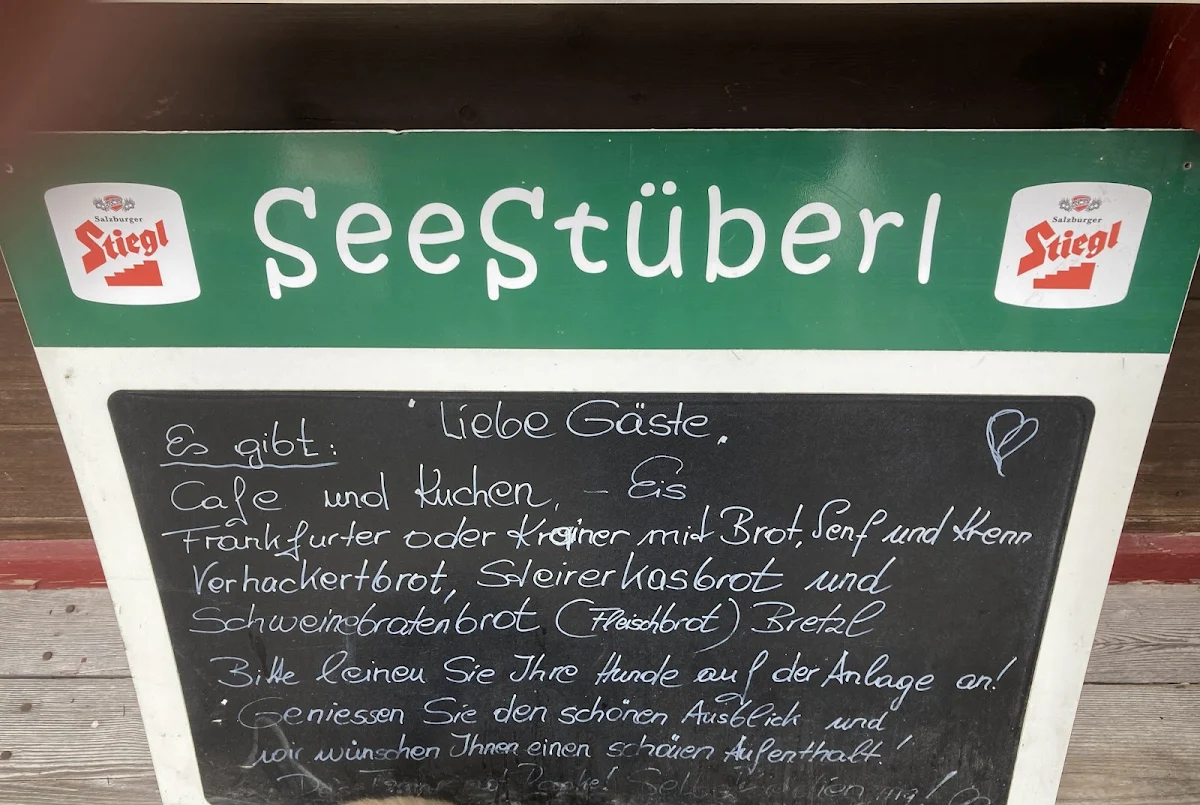 SeeStüberl
Salzburger
Stiegl
Salzburger
Stiegl
Liebe Gäste.
Es gibt:
Cafe und Kuchen, - Eis
Frankfurter oder Krainer mit Brot, Senf und Krenn
Verhackertbrot, Steirerkasbrot und
Schweinebratenbrot (Fleischbrot) Bretzl
Bitte leinen Sie Ihre Hunde auf der Anlage an!
- Geniessen Sie den schönen Ausblick und
wir wünschen Ihnen einen schönen Aufenthalt!
Das Team sagt Danke! Selbstbedienung!